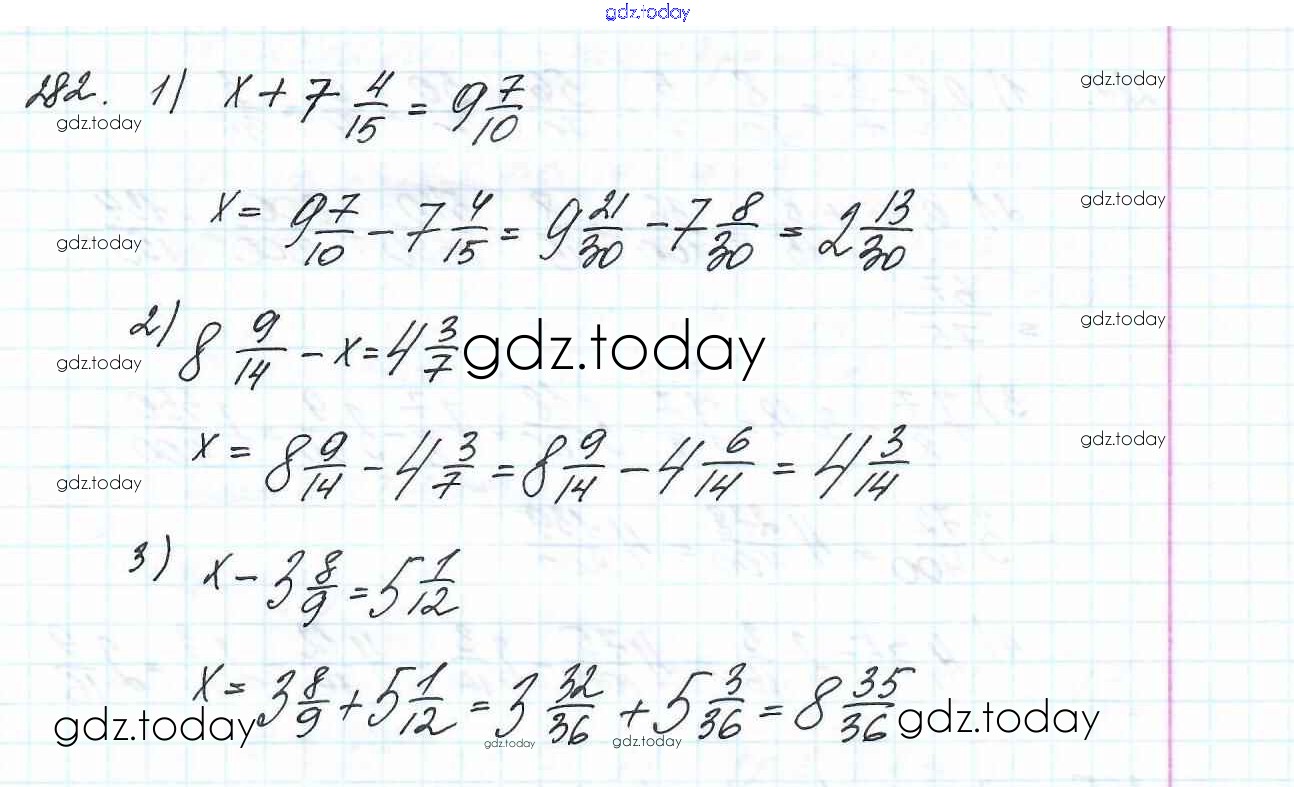 gdz.today
282. 1) x + 7 4/15 = 9 7/10
gdz.today
gdz.today
x = 9 7/10 - 7 4/15 = 9 21/30 - 7 8/30 = 2 13/30
gdz.today
gdz.today
2) 8 9/14 - x = 4 3/7
gdz.today
gdz.today
gdz.today
x = 8 9/14 - 4 3/7 = 8 9/14 - 4 6/14 = 4 3/14
gdz.today
gdz.today
3) x - 3 8/9 = 5 1/12
x = 3 8/9 + 5 1/12 = 3 32/36 + 5 3/36 = 8 35/36
gdz.today
gdz.today
gdz.today
gdz.today